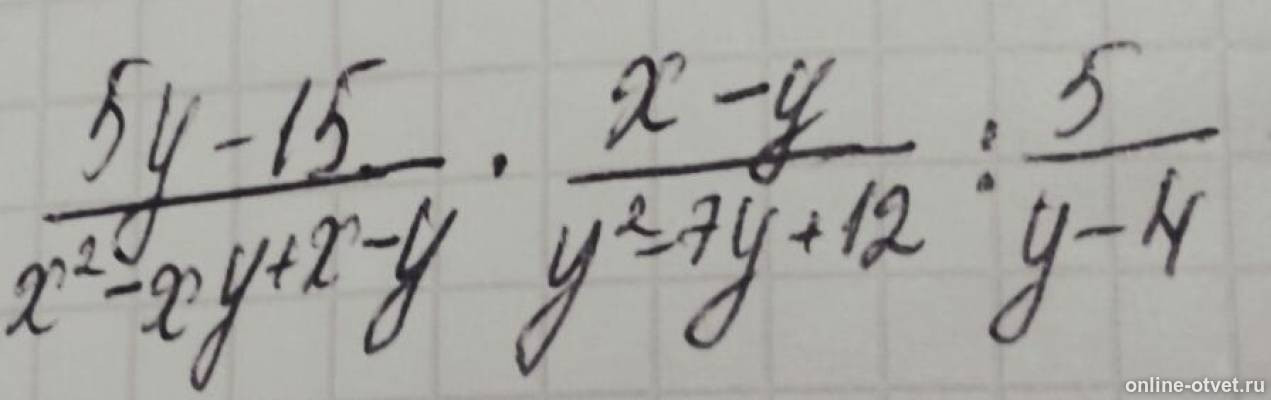 5y-15 / x²-xy+x-y · x-y / y²-7y+12 : 5 / y-4
online-otvet.ru